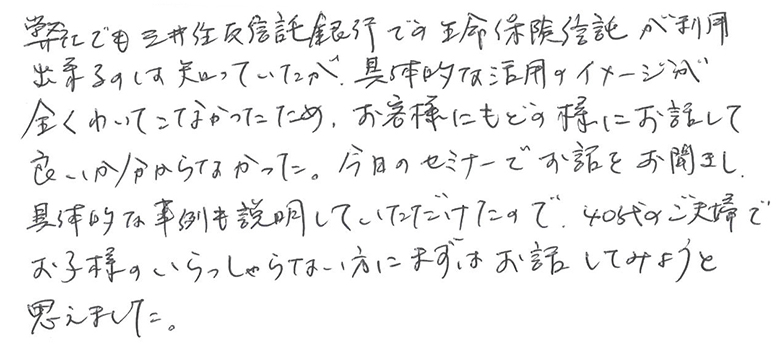 弊社でも三井住友信託銀行での生命保険信託が利用
出来るのは知っていたが、具体的な活用のイメージが
全くわいてこなかったため、お客様にもどの様にお話して
良いか分からなかった。今日のセミナーでお話をお聞きし、
具体的な事例も説明していただけたので、40代のご夫婦で
お子様のいらっしゃらない方にまずはお話してみようと
思えました。